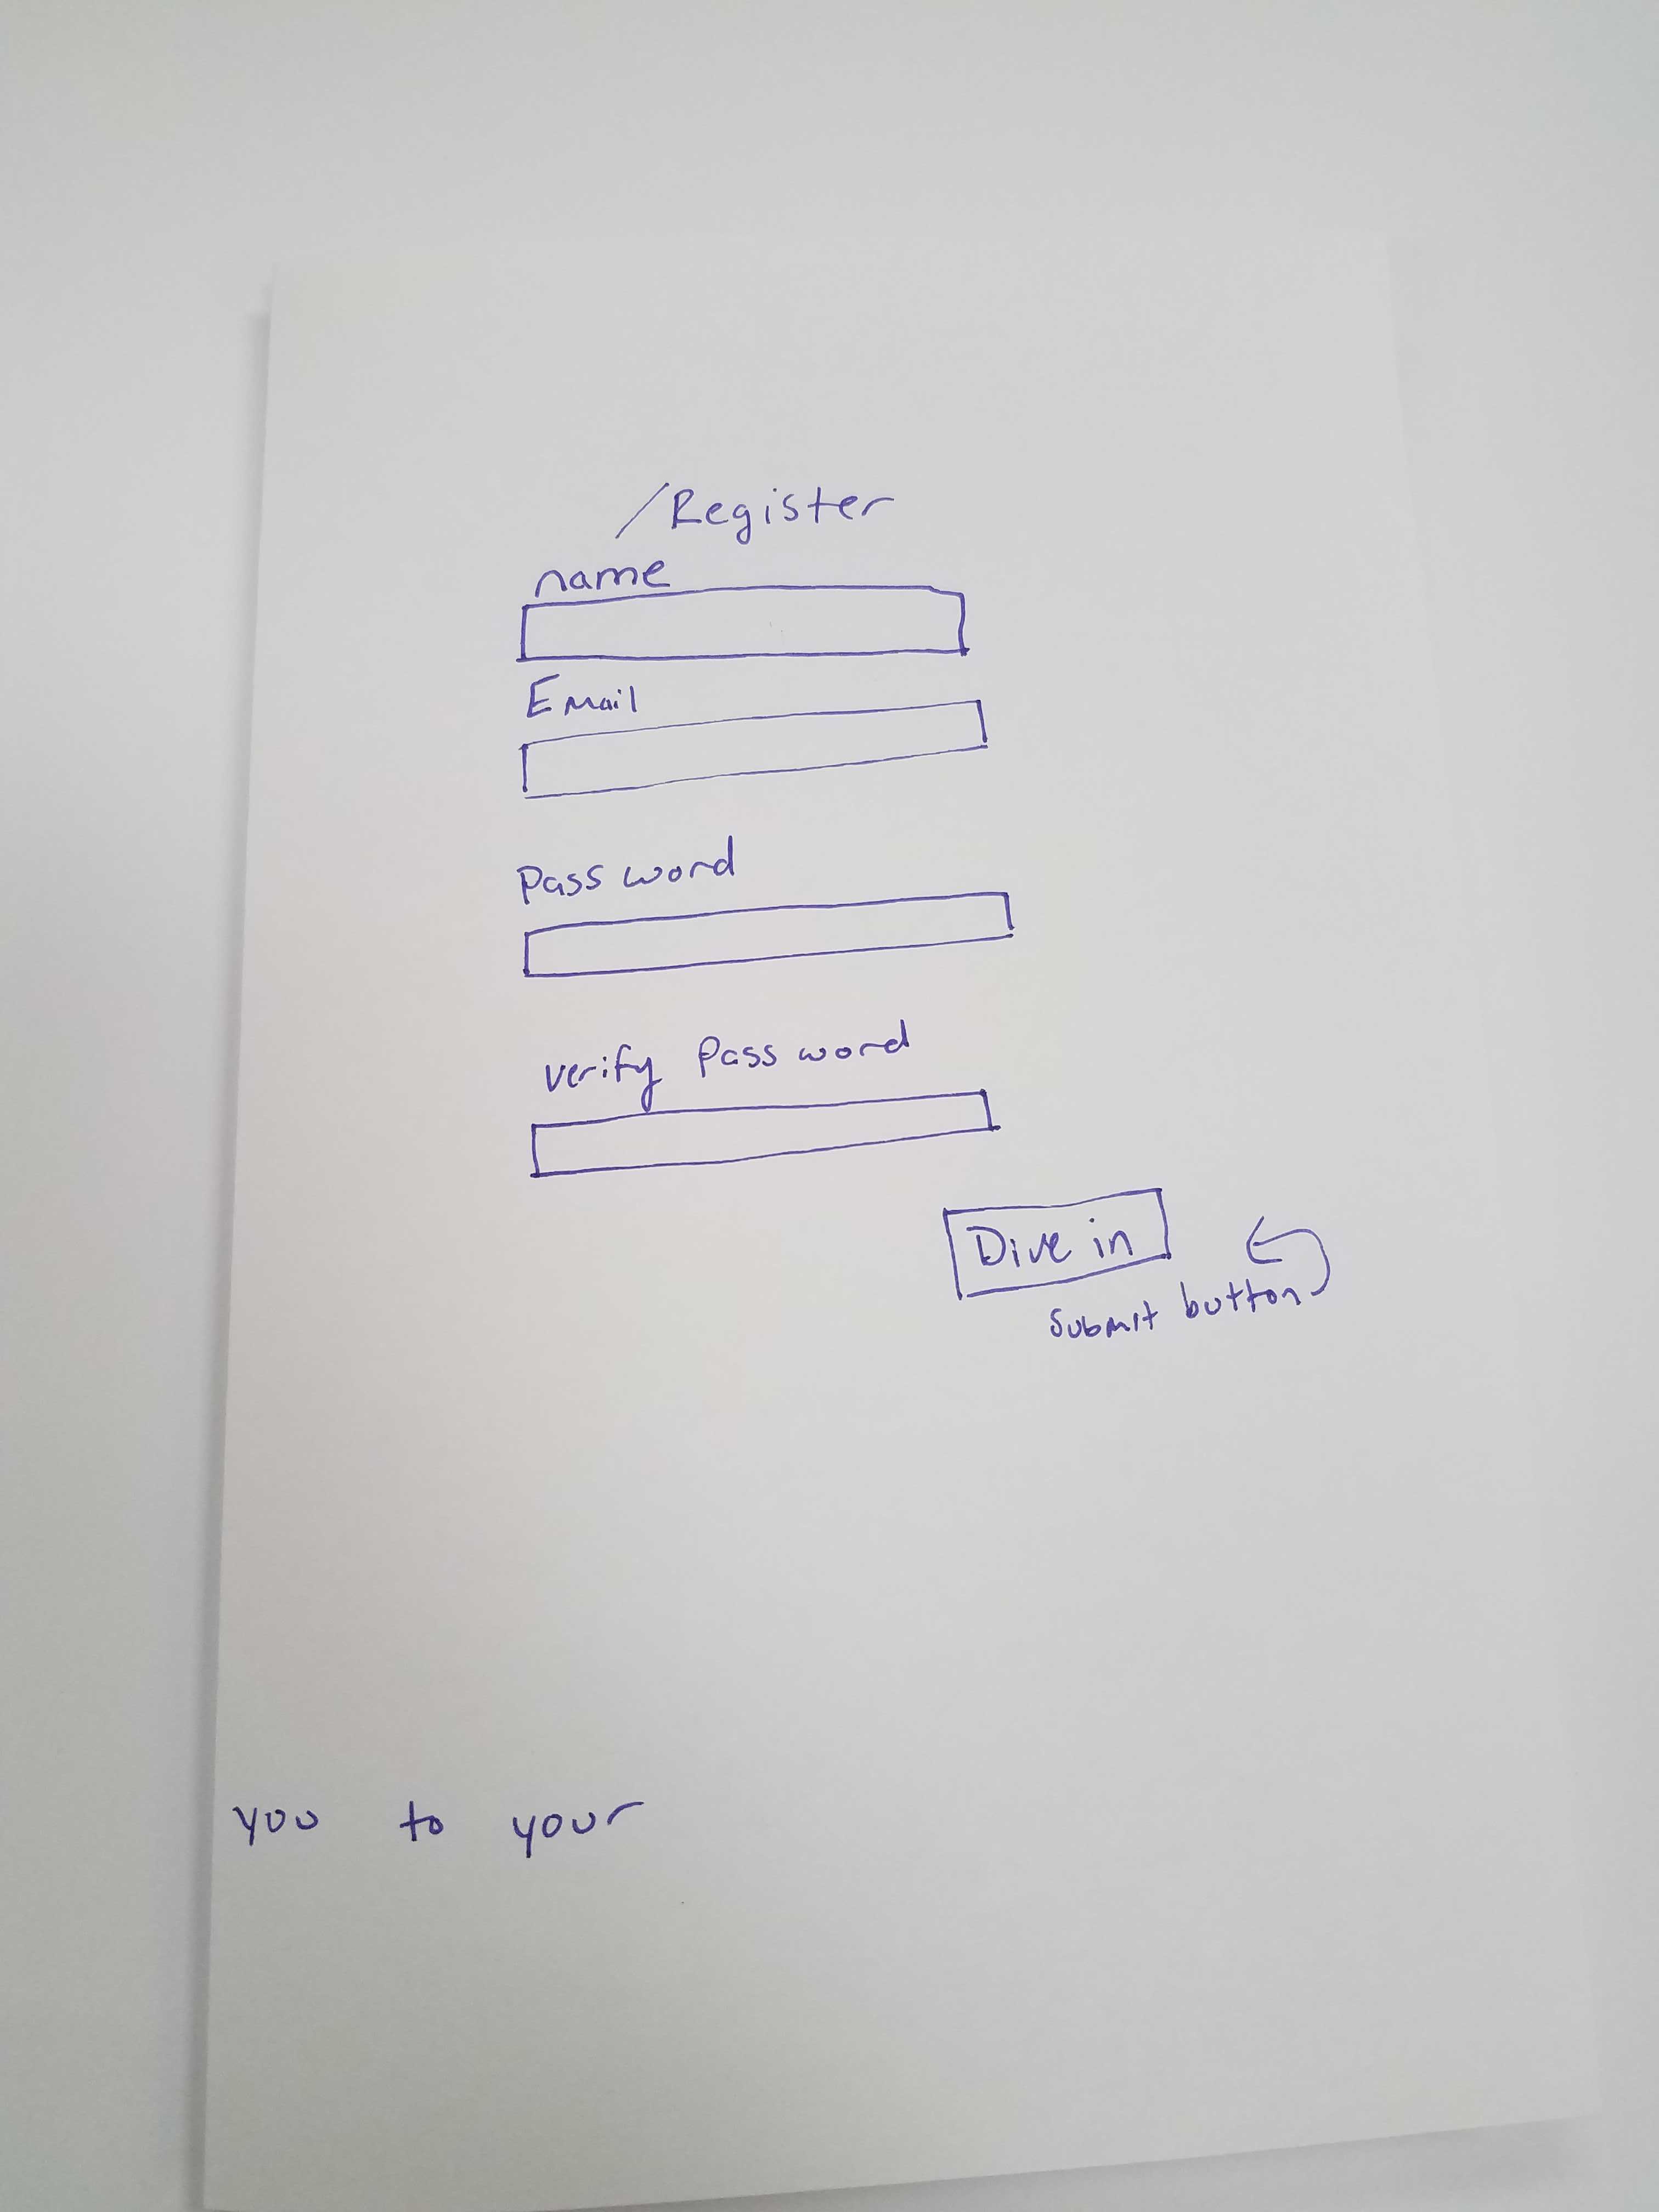 /Register
name
Email
Password
verify Password
Dive in
submit button
you to your